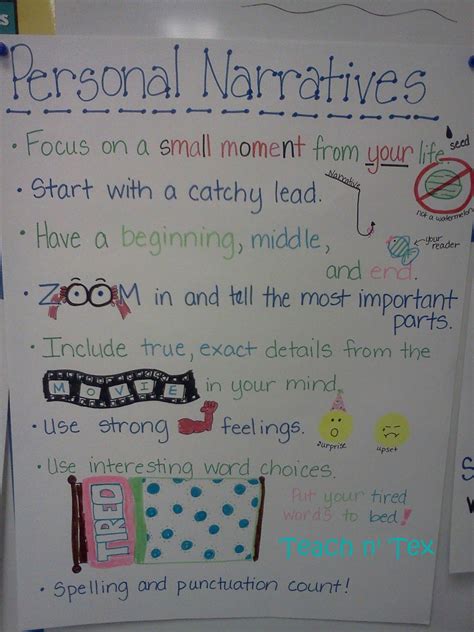 Personal Narratives
• Focus on a small moment from your life.
seed
not a watermelon
• Start with a catchy lead.
Narrative
• Have a beginning, middle, and end.
your reader
• ZOOM in and tell the most important parts.
• Include true, exact details from the
MOVIE in your mind.
• Use strong feelings.
surprise
upset
• Use interesting word choices.
TIRED
Put your tired
words to bed!
Teach n' Tex
• Spelling and punctuation count!